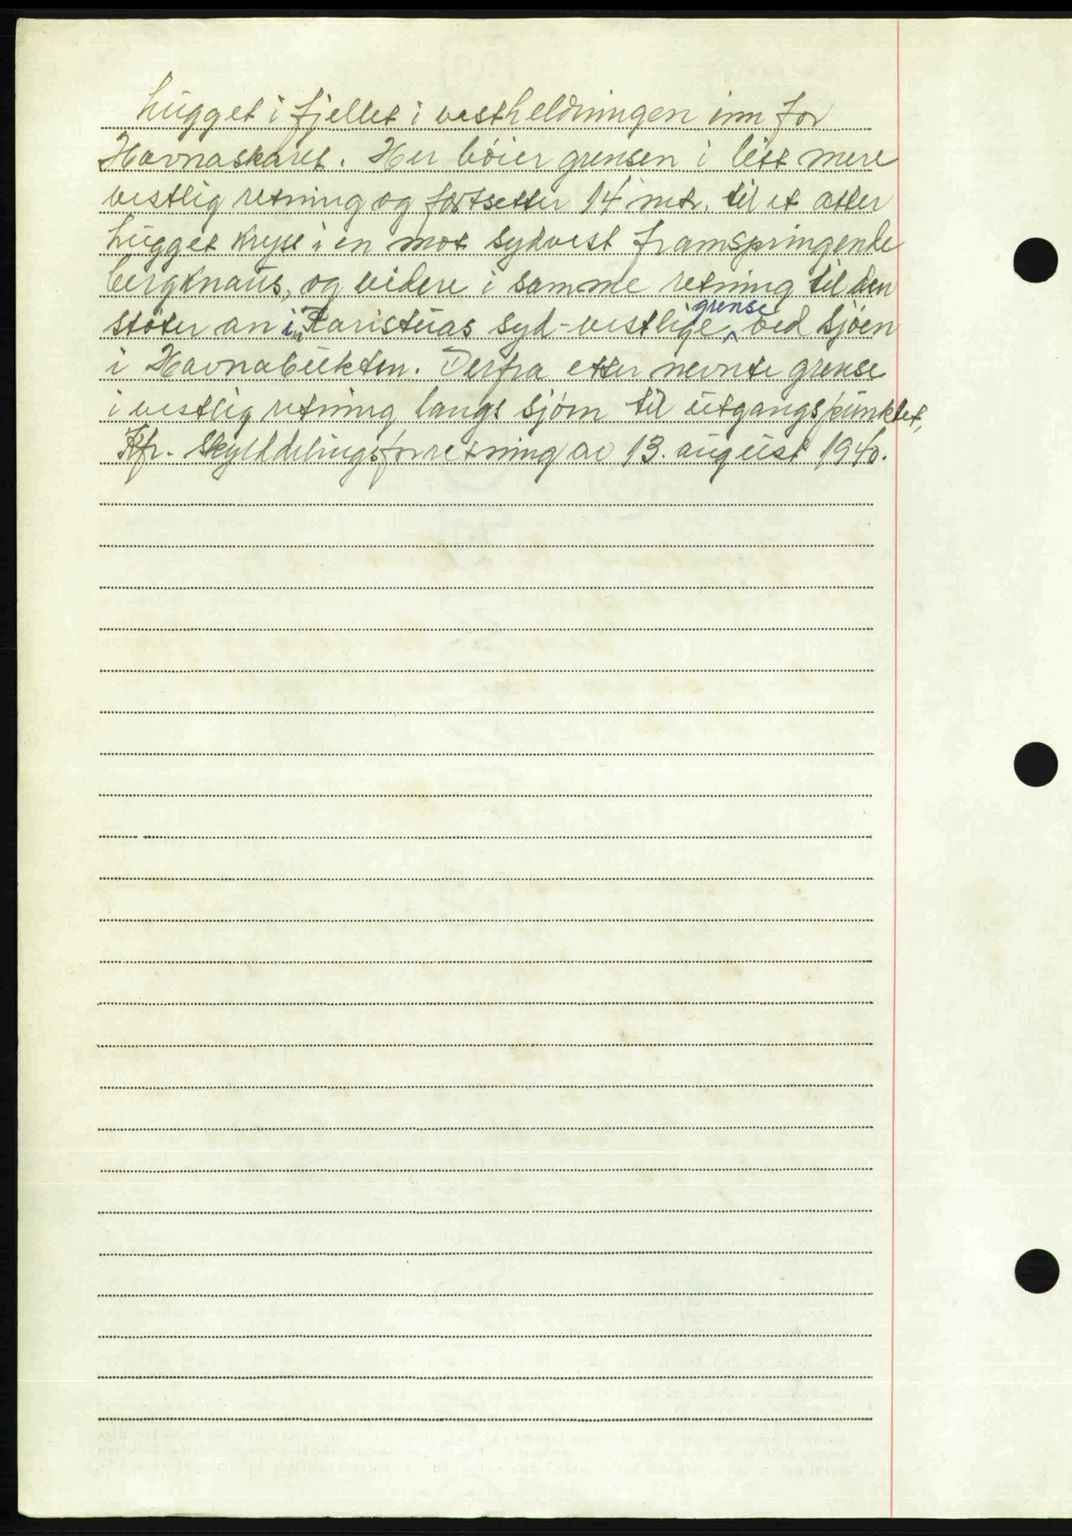 hugget i fjellet i vestheldningen inn for
Havnaskaret. Her bøier grensen i litt mere
vestlig retning og fortsetter 14 mtr. til et atter
hugget kryss i en mot sydvest framspringende
bergknaus, og videre i samme retning til den
støter an i Karistuas syd-vestlige grense ved sjøen
i Havnabukten. Derfra etter nevnte grense
i vestlig retning langs sjøen til utgangspunktet,
Kfr. skylddelingsforretning av 13. august 1940.